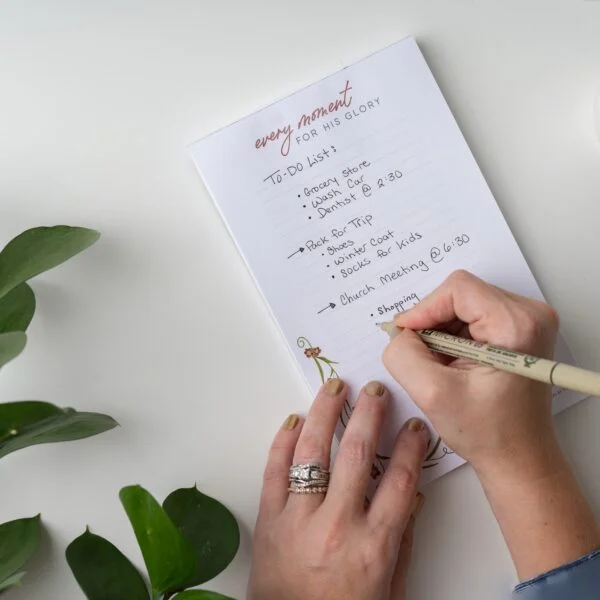 every moment
FOR HIS GLORY
To-Do List:
• Grocery store
• Wash Car
• Dentist @ 2:30
→ Pack for Trip
• Shoes
• Winter Coat
• Socks for kids
→ Church Meeting @ 6:30
• Shopping
MICRON